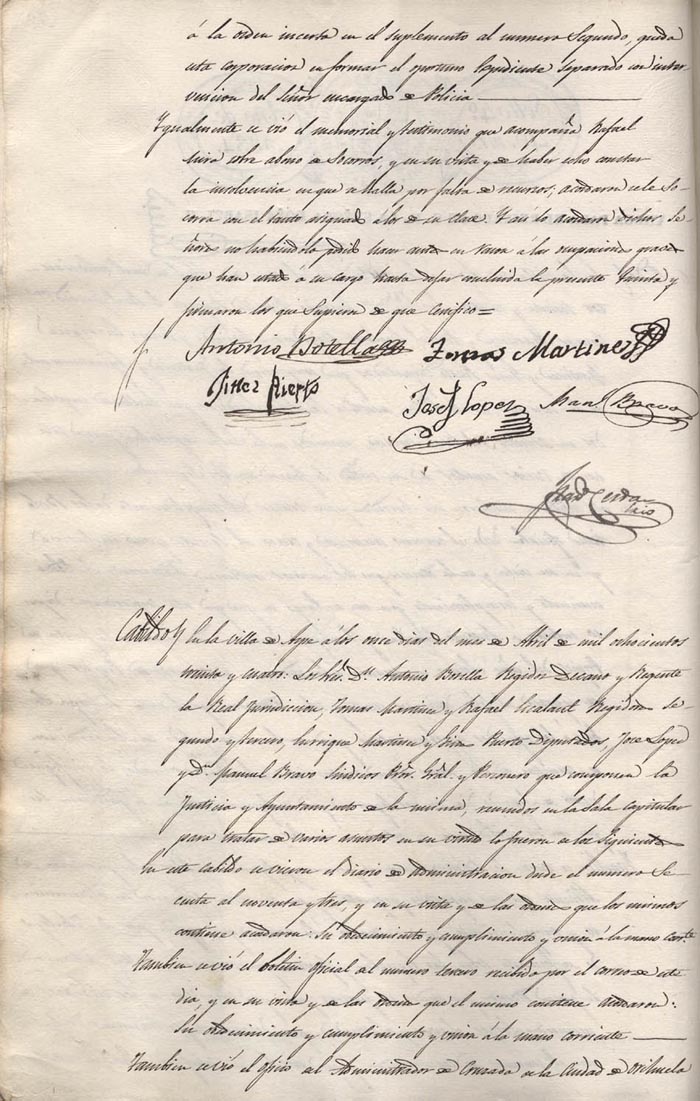 á la orden incerta en el suplemento al numero Segundo, queda
esta corporacion en formar el oportuno Expediente Separado con inter
vencion del Señor encargado de Policia
Ygualmente se vió el memorial y testimonio que acompaña Rafael
Mira sobre abono de Socorros, y en su vista y de haber echo constar
la insolvencia en que se halla por falta de recursos; acordaron se le So
corra con el tanto asignado á los de su Clase. Y así lo acordaron dichos Se
ñores no habiendolo podido hacer antes en razon á las ocupaciones graves
que han estado á su cargo hasta dejar concluida la presente Quinta y
firmaron los que Supieron de que Certifico =
Antonio Botella Tomas Martinez
Jines Puerto
Josef Lopez Manl Bravo
Cabildo En la villa de Aspe á los once dias del mes de Abril de mil ochocientos
treinta y cuatro: Los Sres. Dn. Antonio Botella Regidor Decano y Regente
la Real Jurisdiccion, Tomas Martinez y Rafael Alcalant Regidores Se
gundo y tercero, Enrrique Martinez y Jines Puerto Diputados, Jose Lopez
y Dn. Manuel Bravo Sindicos Pror. Gral. y Personero que componen la
Justicia y Ayuntamiento de la misma, reunidos en la Sala capitular
para tratar de varios asuntos en su virtud lo fueron de los Siguientes
En este cabildo se vieron el diario de administracion desde el numero Se
senta al noventa y tres, y en su vista y de las ordenes que los mismos
contiene acordaron: Su obedecimiento y cumplimiento y union á la mano corrte
Tambien se vió el boletin oficial del numero tercero recibido por el correo de este
dia, y en su vista y de las ordenes que el mismo contiene acordaron:
Su obedecimiento y cumplimiento y union á la mano corriente
Tambien se vió el oficio del Administrador de Cruzada de la Ciudad de Orihuela